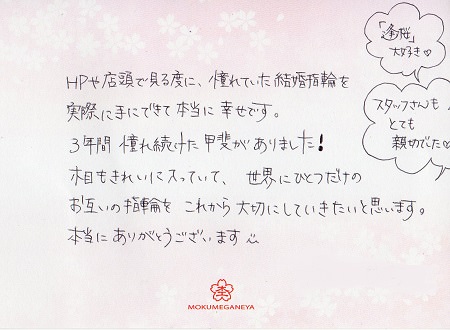 「逢桜」
大好き♡
HPや店頭で見る度に、憧れていた結婚指輪を
実際に手にできて本当に幸せです。
スタッフさんも
とても
親切でした♡
3年間憧れ続けた甲斐がありました!
木目もきれいに入っていて、世界にひとつだけの
お互いの指輪をこれから大切にしていきたいと思います。
本当にありがとうございます
MOKUMEGANEYA